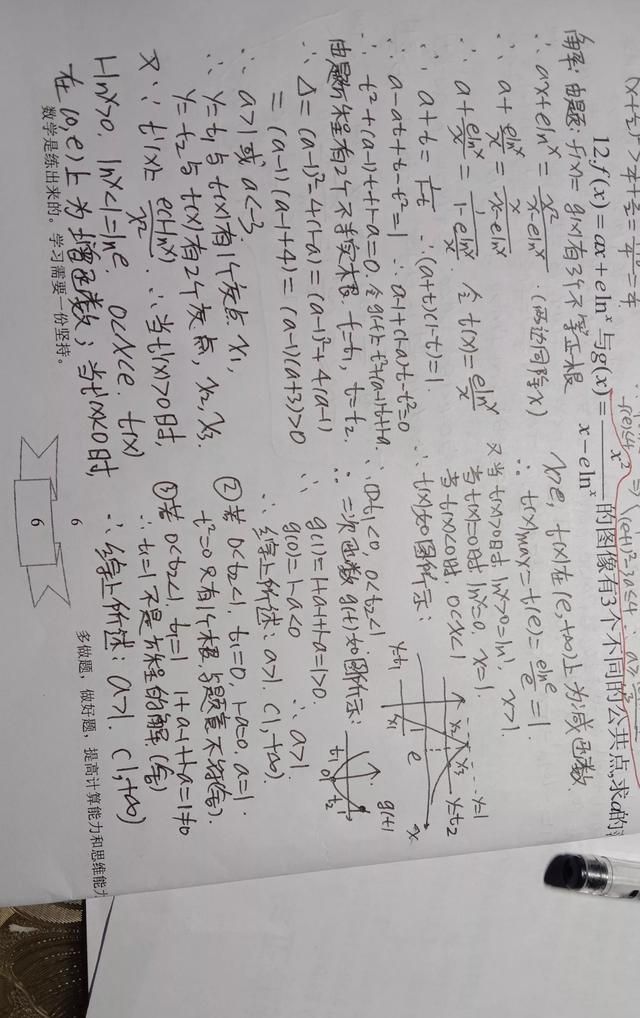 12.f(x)=ax+elnx与g(x)=x²/(x-elnx)的图像有3个不同的公共点,求a的
解:由题:f(x)=g(x)有3个不等正根
∴ax+elnx=x²/(x-elnx).(两边同除x)
∴a+elnx/x=x/(x-elnx)
∴a+elnx/x=1/(1-elnx/x) 令t(x)=elnx/x
∴a+t=1/(1-t) ∴(a+t)(1-t)=1.
∴a-at+t-t²=1 ∴a-1+(1-a)t-t²=0
∴t²+(a-1)t+1-a=0.令g(t)=t²+(a-1)t+1-a.
由题方程有2个不等实根 t=t₁, t=t₂.
∴Δ=(a-1)²-4(1-a)=(a-1)²+4(a-1)
=(a-1)(a-1+4)=(a-1)(a+3)>0
∴a>1或a<-3.
∴y=t₁与t(x)有1个交点x₁,
y=t₂与t(x)有2个交点,x₂,x₃.
又∵t'(x)=e(1-lnx)/x².∴当t'(x)>0时,
1-lnx>0. lnx<1=lne. 0<x<e. t(x)
在(0,e)上为增函数;当t'(x)<0时,
x>e, t(x)在(e,+∞)上为减函数
∴t(x)max=t(e)=elne/e=1.
又当t(x)>0时 lnx>0=ln1, x>1.
当t(x)=0时 lnx=0. x=1.
当t(x)<0时 0<x<1
∴t(x)如图所示:
y=t₁
x₁
e
x₂
x₃
y=1
y=t₂
x
∴①t₁<0, 0<t₂<1
∴二次函数g(t)如图所示:
g(t)
t₁
0
t₂
1
∴g(1)=1+a-1+1-a=1>0.
g(0)=1-a<0 ∴a>1.
∴综上所述:a>1. (1,+∞).
②若0<t₂<1, t₁=0, 1-a=0, a=1.
t²=0只有1个根,与题意不符(舍).
③若0<t₂<1, t₁=1 1+a-1+1-a=1≠0
∴t₁=1不是方程的解.(舍)
∴综上所述:a>1. (1,+∞)
数学是练出来的。学习需要一份坚持。
6
6
多做题,做好题,提高计算能力和思维能力